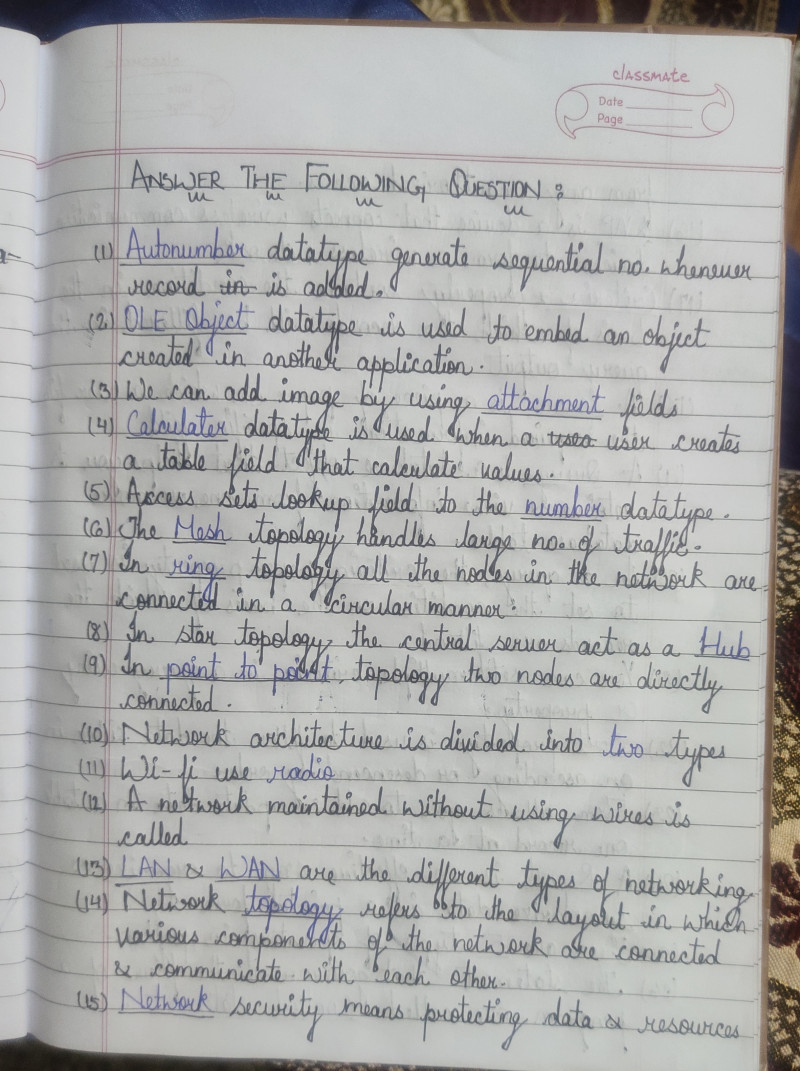 classmate
Date
Page
ANSWER THE FOLLOWING QUESTION :
(1) Autonumber datatype generate sequential no. whenever
record in is added.
(2) OLE Object datatype is used to embed an object
created in another application.
(3) We can add image by using attachment fields
(4) Calculater datatype is used when a user creates
a table field that calculate values.
(5) Access sets lookup field to the number datatype.
(6) The Mesh topology handles large no. of traffic.
(7) In ring topology all the nodes in the network are
connected in a circular manner.
(8) In star topology the central server act as a Hub
(9) In point to point topology two nodes are directly
connected.
(10) Network architecture is divided into two types
(11) Wi-fi use radio
(12) A network maintained without using wires is
called
(13) LAN & WAN are the different types of networking
(14) Network topology refers to the layout in which
various components of the network are connected
& communicate with each other.
(15) Network security means protecting data & resources